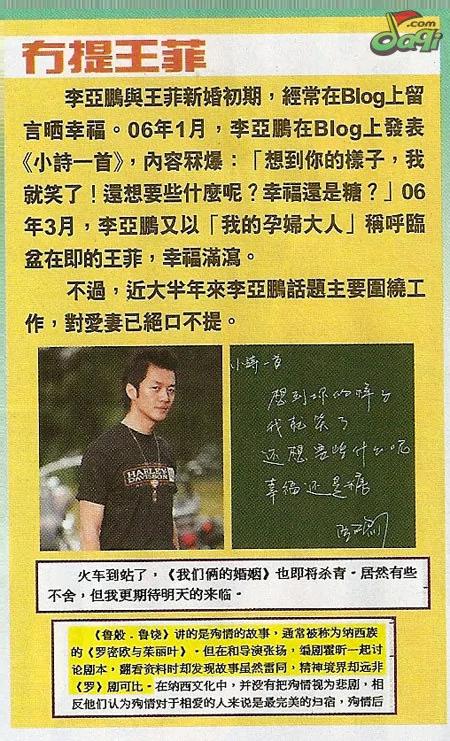 .com
daqi
冇提王菲
李亞鵬與王菲新婚初期，經常在Blog上留
言晒幸福。06年1月，李亞鵬在Blog上發表
《小詩一首》，內容冧爆：「想到你的樣子，我
就笑了！還想要些什麼呢？幸福還是糖？」06
年3月，李亞鵬又以「我的孕婦大人」稱呼臨
盆在即的王菲，幸福滿瀉。
不過，近大半年來李亞鵬話題主要圍繞工
作，對愛妻已絕口不提。
HARLEY
DAVIDSON
小诗一首
想到你的样子
我就笑了
还想要些什么呢
幸福还是糖
火车到站了，《我们俩的婚姻》也即将杀青。居然有些
不舍，但我更期待明天的来临。
《鲁般．鲁饶》讲的是殉情的故事，通常被称为纳西族
的《罗密欧与茱丽叶》。但在和导演张扬，编剧霍昕一起讨
论剧本，翻看资料时却发现故事虽然雷同，精神境界却远非
《罗》剧可比。在纳西文化中，并没有把殉情视为悲剧，相
反他们认为殉情对于相爱的人来说是最完美的归宿，殉情后